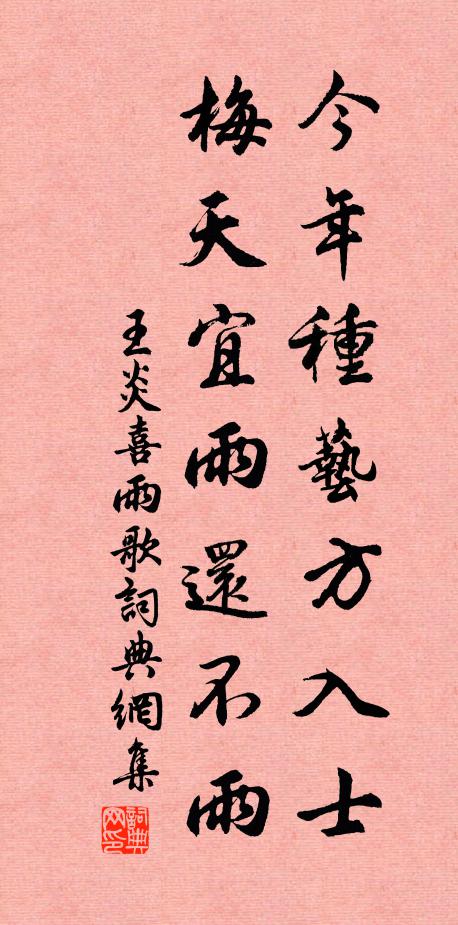 今年種藝方入士
梅天宜雨還不雨
王炎喜雨歌詞典網集
詞典网印